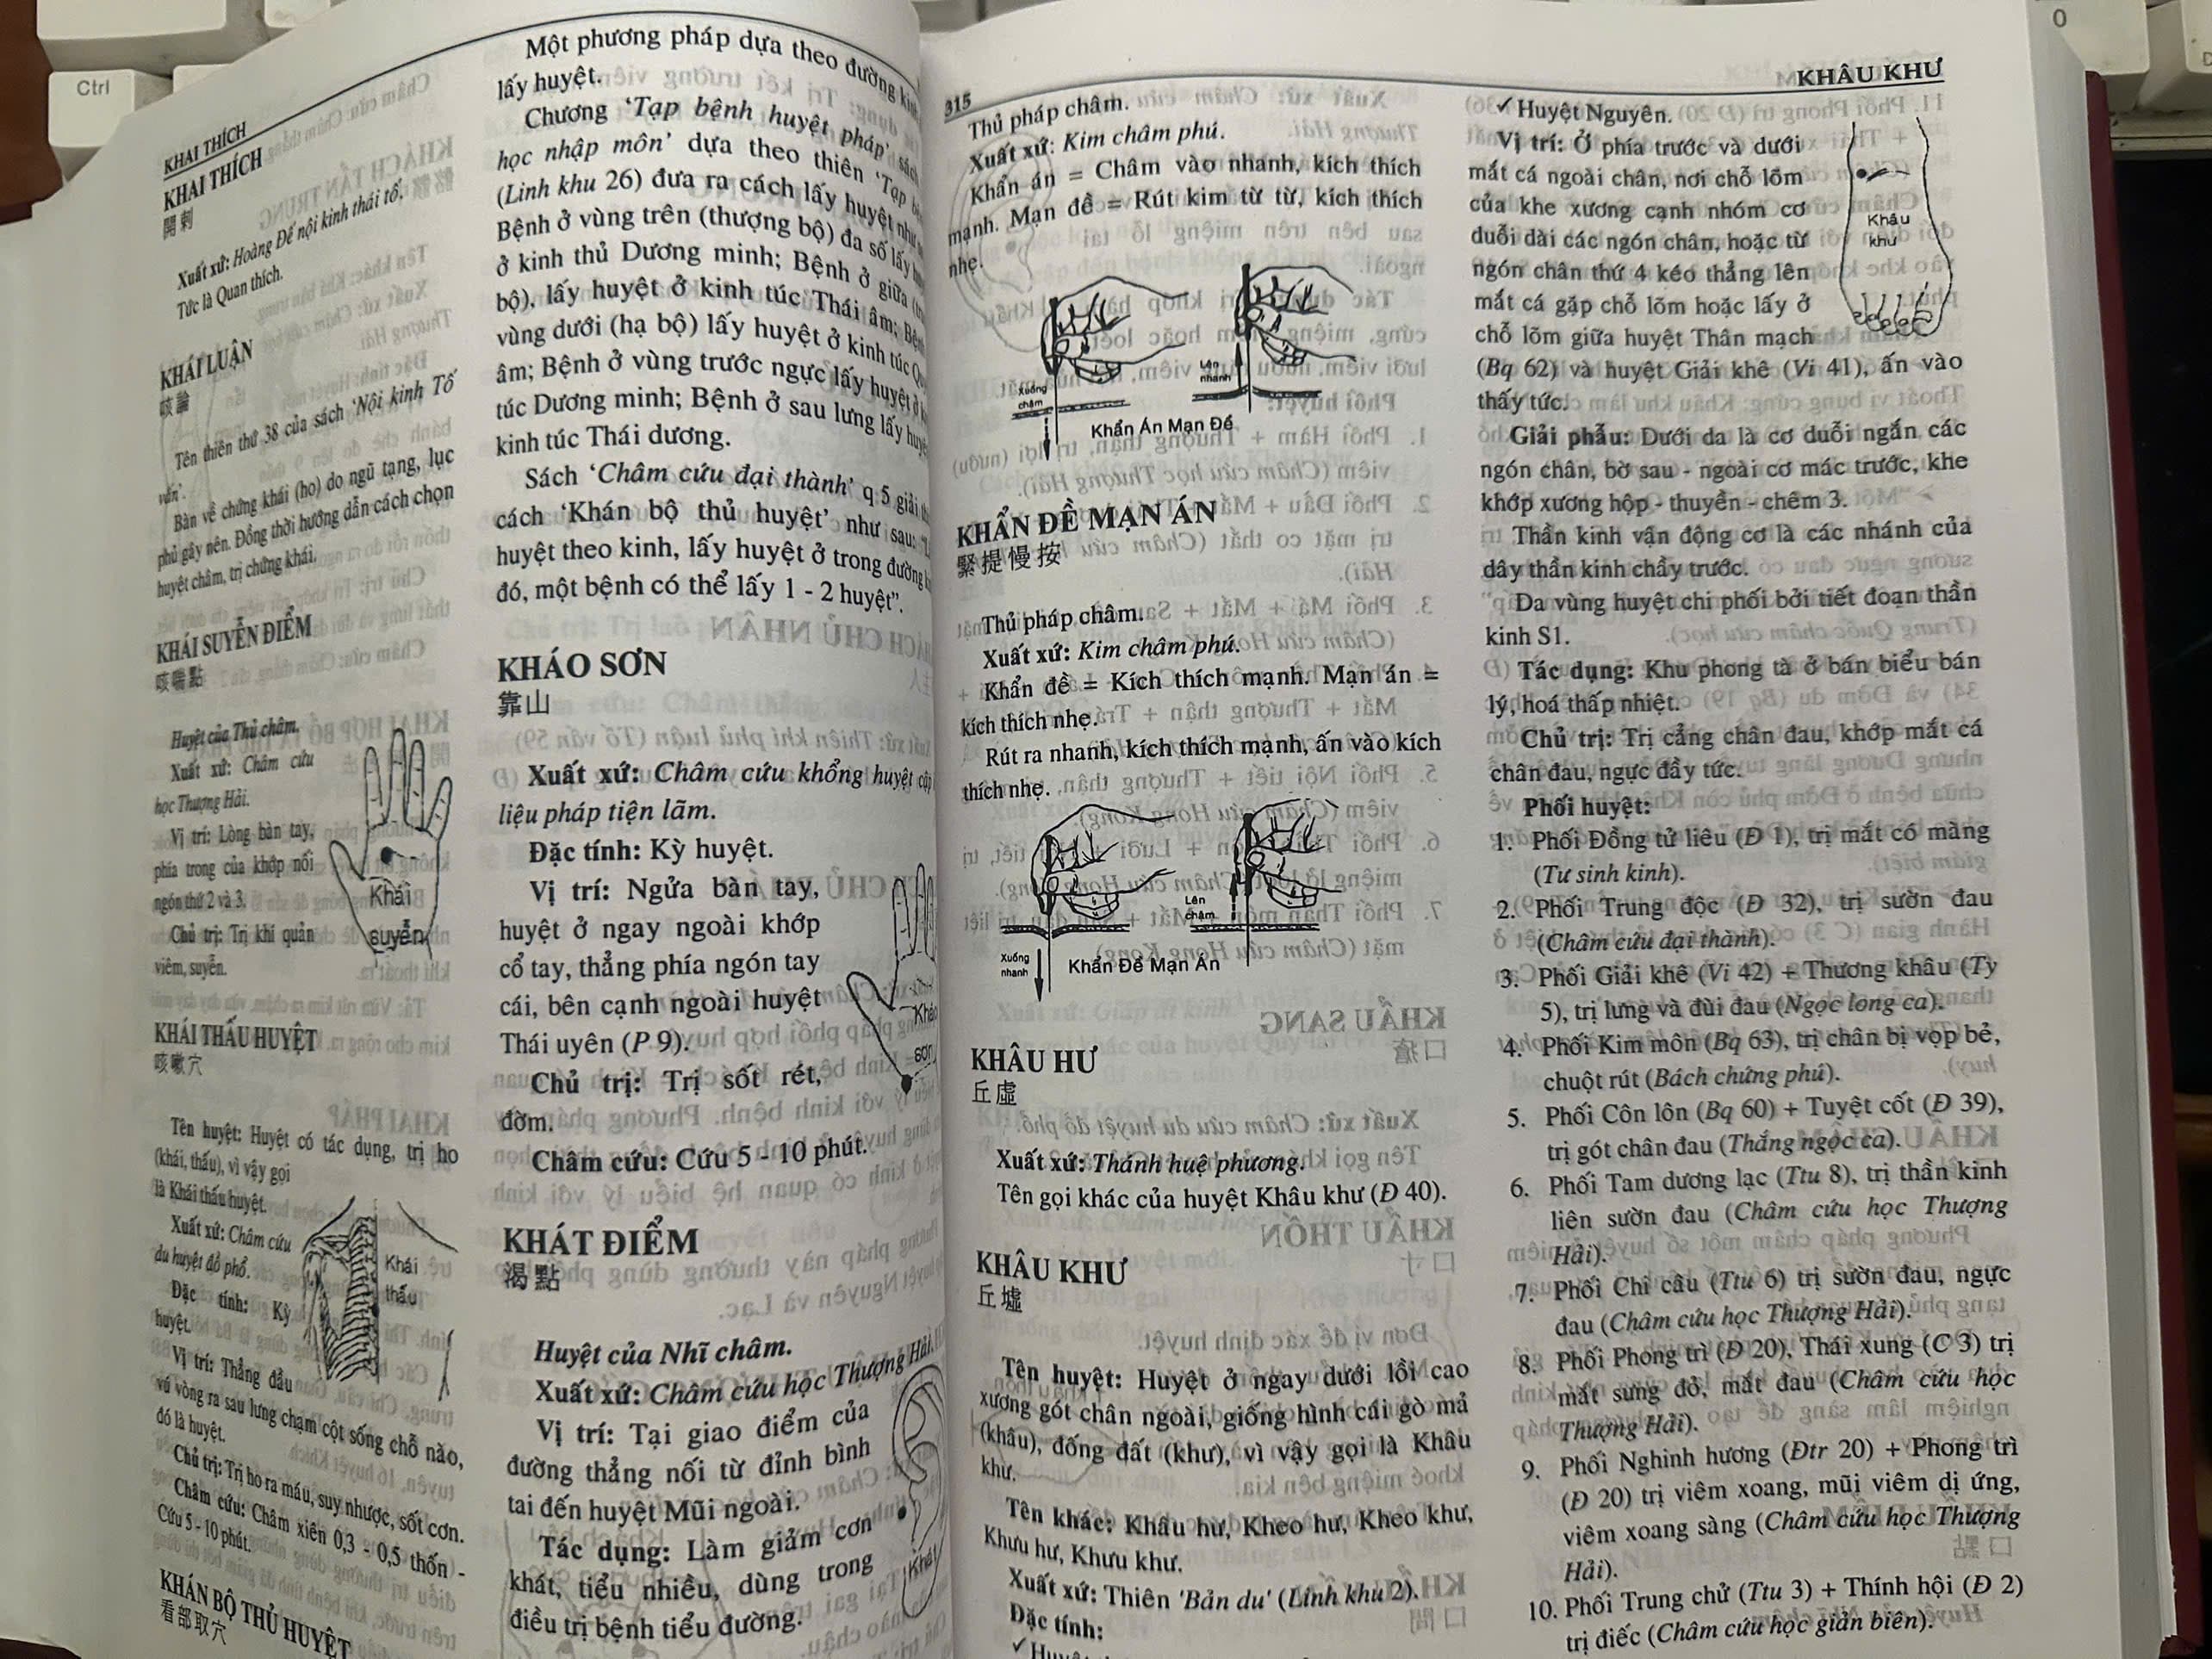 Ctrl
KHAI THÍCH
KHAI THÍCH
開刺
Xuất xứ: Hoàng Đế nội kinh thái tố.
Tức là Quan thích.
KHÁI LUẬN
咳論
Tên thiên thứ 38 của sách ‘Nội kinh Tố
vấn’.
Bàn về chứng khái (ho) do ngũ tạng, lục
phủ gây nên. Đồng thời hướng dẫn cách chọn
huyệt châm, trị chứng khái.
KHÁI SUYỄN ĐIỂM
咳喘點
Huyệt của Thủ châm.
Xuất xứ: Châm cứu
học Thượng Hải.
Vị trí: Lòng bàn tay,
phía trong của khớp nối
ngón thứ 2 và 3.
Chủ trị: Trị khí quản
viêm, suyễn.
Khái
suyễn
KHÁI THẤU HUYỆT
咳嗽穴
Tên huyệt: Huyệt có tác dụng, trị ho
(khái, thấu), vì vậy gọi
là Khái thấu huyệt.
Xuất xứ: Châm cứu
du huyệt đồ phổ.
Đặc tính: Kỳ
huyệt.
Vị trí: Thẳng đầu
vú vòng ra sau lưng chạm cột sống chỗ nào,
đó là huyệt.
Chủ trị: Trị ho ra máu, suy nhược, sốt cơn.
Châm cứu: Châm xiên 0,3 - 0,5 thốn -
Cứu 5 - 10 phút.
Khái
thấu
KHÁN BỘ THỦ HUYỆT
看部取穴
Một phương pháp dựa theo đường kinh
lấy huyệt.
Chương ‘Tạp bệnh huyệt pháp’ sách
học nhập môn’ dựa theo thiên ‘Tạp
(Linh khu 26) đưa ra cách lấy huyệt như
Bệnh ở vùng trên (thượng bộ) đa số lấy
ở kinh thủ Dương minh; Bệnh ở giữa
bộ), lấy huyệt ở kinh túc Thái âm; Bệnh
vùng dưới (hạ bộ) lấy huyệt ở kinh túc
âm; Bệnh ở vùng trước ngực lấy huyệt ở
túc Dương minh; Bệnh ở sau lưng lấy
kinh túc Thái dương.
Sách ‘Châm cứu đại thành’ q 5 giải
cách ‘Khán bộ thủ huyệt’ như sau:
huyệt theo kinh, lấy huyệt ở trong đường
đó, một bệnh có thể lấy 1 - 2 huyệt”.
KHÁO SƠN
靠山
Xuất xứ: Châm cứu khổng huyệt cập
liệu pháp tiện lãm.
Đặc tính: Kỳ huyệt.
Vị trí: Ngửa bàn tay,
huyệt ở ngay ngoài khớp
cổ tay, thẳng phía ngón tay
cái, bên cạnh ngoài huyệt
Thái uyên (P 9).
Chủ trị: Trị sốt rét,
đờm.
Châm cứu: Cứu 5 - 10 phút.
Kháo
sơn
KHÁT ĐIỂM
渴點
Huyệt của Nhĩ châm.
Xuất xứ: Châm cứu học Thượng Hải.
Vị trí: Tại giao điểm của
đường thẳng nối từ đỉnh bình
tai đến huyệt Mũi ngoài.
Tác dụng: Làm giảm cơn
khát, tiểu nhiều, dùng trong
điều trị bệnh tiểu đường.
Khát
315
KHÂU KHƯ
Thủ pháp châm.
Xuất xứ: Kim châm phú.
Khẩn án = Châm vào nhanh, kích thích
mạnh. Mạn đề = Rút kim từ từ, kích thích
nhẹ.
Xuống
chậm
Lên
nhanh
Khẩn Án Mạn Đề
KHẨN ĐỀ MẠN ÁN
緊提慢按
Thủ pháp châm.
Xuất xứ: Kim châm phú.
Khẩn đề = Kích thích mạnh. Mạn án =
kích thích nhẹ.
Rút ra nhanh, kích thích mạnh, ấn vào kích
thích nhẹ.
Lên
chậm
Xuống
nhanh
Khẩn Đề Mạn Án
KHÂU HƯ
丘虛
Xuất xứ: Thánh huệ phương.
Tên gọi khác của huyệt Khâu khư (Đ 40).
KHÂU KHƯ
丘墟
Tên huyệt: Huyệt ở ngay dưới lồi cao
xương gót chân ngoài, giống hình cái gò mả
(khâu), đống đất (khư), vì vậy gọi là Khâu
khư.
Tên khác: Khâu hư, Kheo hư, Kheo khư,
Khưu hư, Khưu khư.
Xuất xứ: Thiên 'Bản du' (Linh khu 2).
Đặc tính:
✓ Huyệt Nguyên.
Vị trí: Ở phía trước và dưới
mắt cá ngoài chân, nơi chỗ lõm
của khe xương cạnh nhóm cơ
duỗi dài các ngón chân, hoặc từ
ngón chân thứ 4 kéo thẳng lên
mắt cá gặp chỗ lõm hoặc lấy ở
chỗ lõm giữa huyệt Thân mạch
(Bq 62) và huyệt Giải khê (Vi 41), ấn vào
thấy tức.
Khâu
khư
Giải phẫu: Dưới da là cơ duỗi ngắn các
ngón chân, bờ sau - ngoài cơ mác trước, khe
khớp xương hộp - thuyền - chêm 3.
Thần kinh vận động cơ là các nhánh của
dây thần kinh chầy trước.
Da vùng huyệt chi phối bởi tiết đoạn thần
kinh S1.
Tác dụng: Khu phong tà ở bán biểu bán
lý, hoá thấp nhiệt.
Chủ trị: Trị cẳng chân đau, khớp mắt cá
chân đau, ngực đầy tức.
Phối huyệt:
1. Phối Đồng tử liêu (Đ 1), trị mắt có màng
(Tư sinh kinh).
2. Phối Trung độc (Đ 32), trị sườn đau
(Châm cứu đại thành).
3. Phối Giải khê (Vi 42) + Thương khâu (Ty
5), trị lưng và đùi đau (Ngọc long ca).
4. Phối Kim môn (Bq 63), trị chân bị vọp bẻ,
chuột rút (Bách chứng phú).
5. Phối Côn lôn (Bq 60) + Tuyệt cốt (Đ 39),
trị gót chân đau (Thắng ngọc ca).
6. Phối Tam dương lạc (Ttu 8), trị thần kinh
liên sườn đau (Châm cứu học Thượng
Hải).
7. Phối Chi câu (Ttu 6) trị sườn đau, ngực
đau (Châm cứu học Thượng Hải).
8. Phối Phong trì (Đ 20), Thái xung (C 3) trị
mắt sưng đỏ, mắt đau (Châm cứu học
Thượng Hải).
9. Phối Nghinh hương (Đtr 20) + Phong trì
(Đ 20) trị viêm xoang, mũi viêm dị ứng,
viêm xoang sàng (Châm cứu học Thượng
Hải).
10. Phối Trung chử (Ttu 3) + Thính hội (Đ 2)
trị điếc (Châm cứu học giản biên).